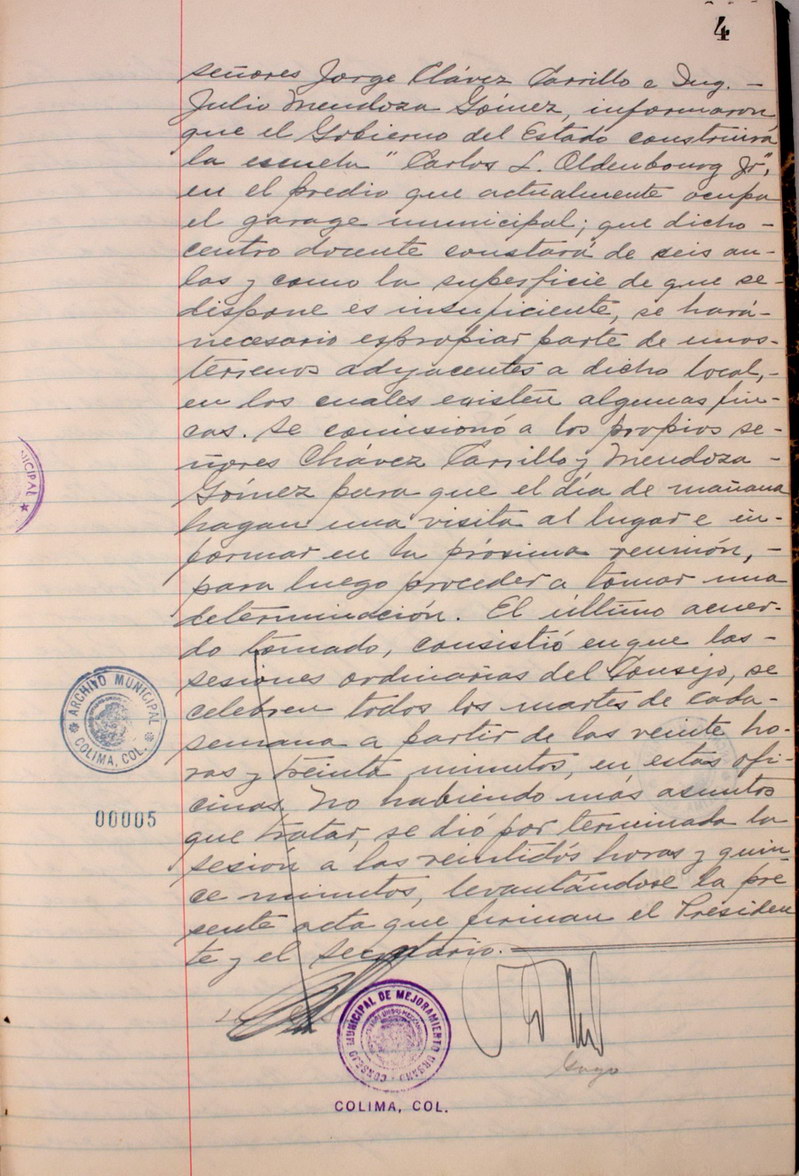 4
señores Jorge Chávez Carrillo e Ing. -
Julio Mendoza Gómez, informaron,
que el Gobierno del Estado construirá
la escuela "Carlos L. Oldenbourg Jr",
en el predio que actualmente ocupa
el garage municipal; que dicho -
centro docente constará de seis au-
las y como la superficie de que se-
dispone es insuficiente, se hará-
necesario espropiar parte de unos-
terrenos adyacentes a dicho local,-
en los cuales existen algunas fin-
cas. Se comisionó a los propios se-
ñores Chávez Carrillo y Mendoza -
Gómez para que el día de mañana
hagan una visita al lugar e in-
formar en la próxima reunión, -
para luego proceder a tomar una
determinación. El último acuer-
do tomado, consistió en que las -
sesiones ordinarias del Consejo, se
celebren todos los martes de cada-
semana a partir de las veinte ho-
ras y treinta minutos, en estas ofi-
cinas. No habiendo más asuntos
que tratar, se dió por terminada la
sesión a las veintidós horas y quin-
ce minutos, levantándose la pre
sente acta que firman el Presiden
te y el Secretario.
NICIPAL
ARCHIVO MUNICIPAL
COLIMA, COL.
00005
CONSEJO MUNICIPAL DE MEJORAMIENTO URBANO
COLIMA, COL.